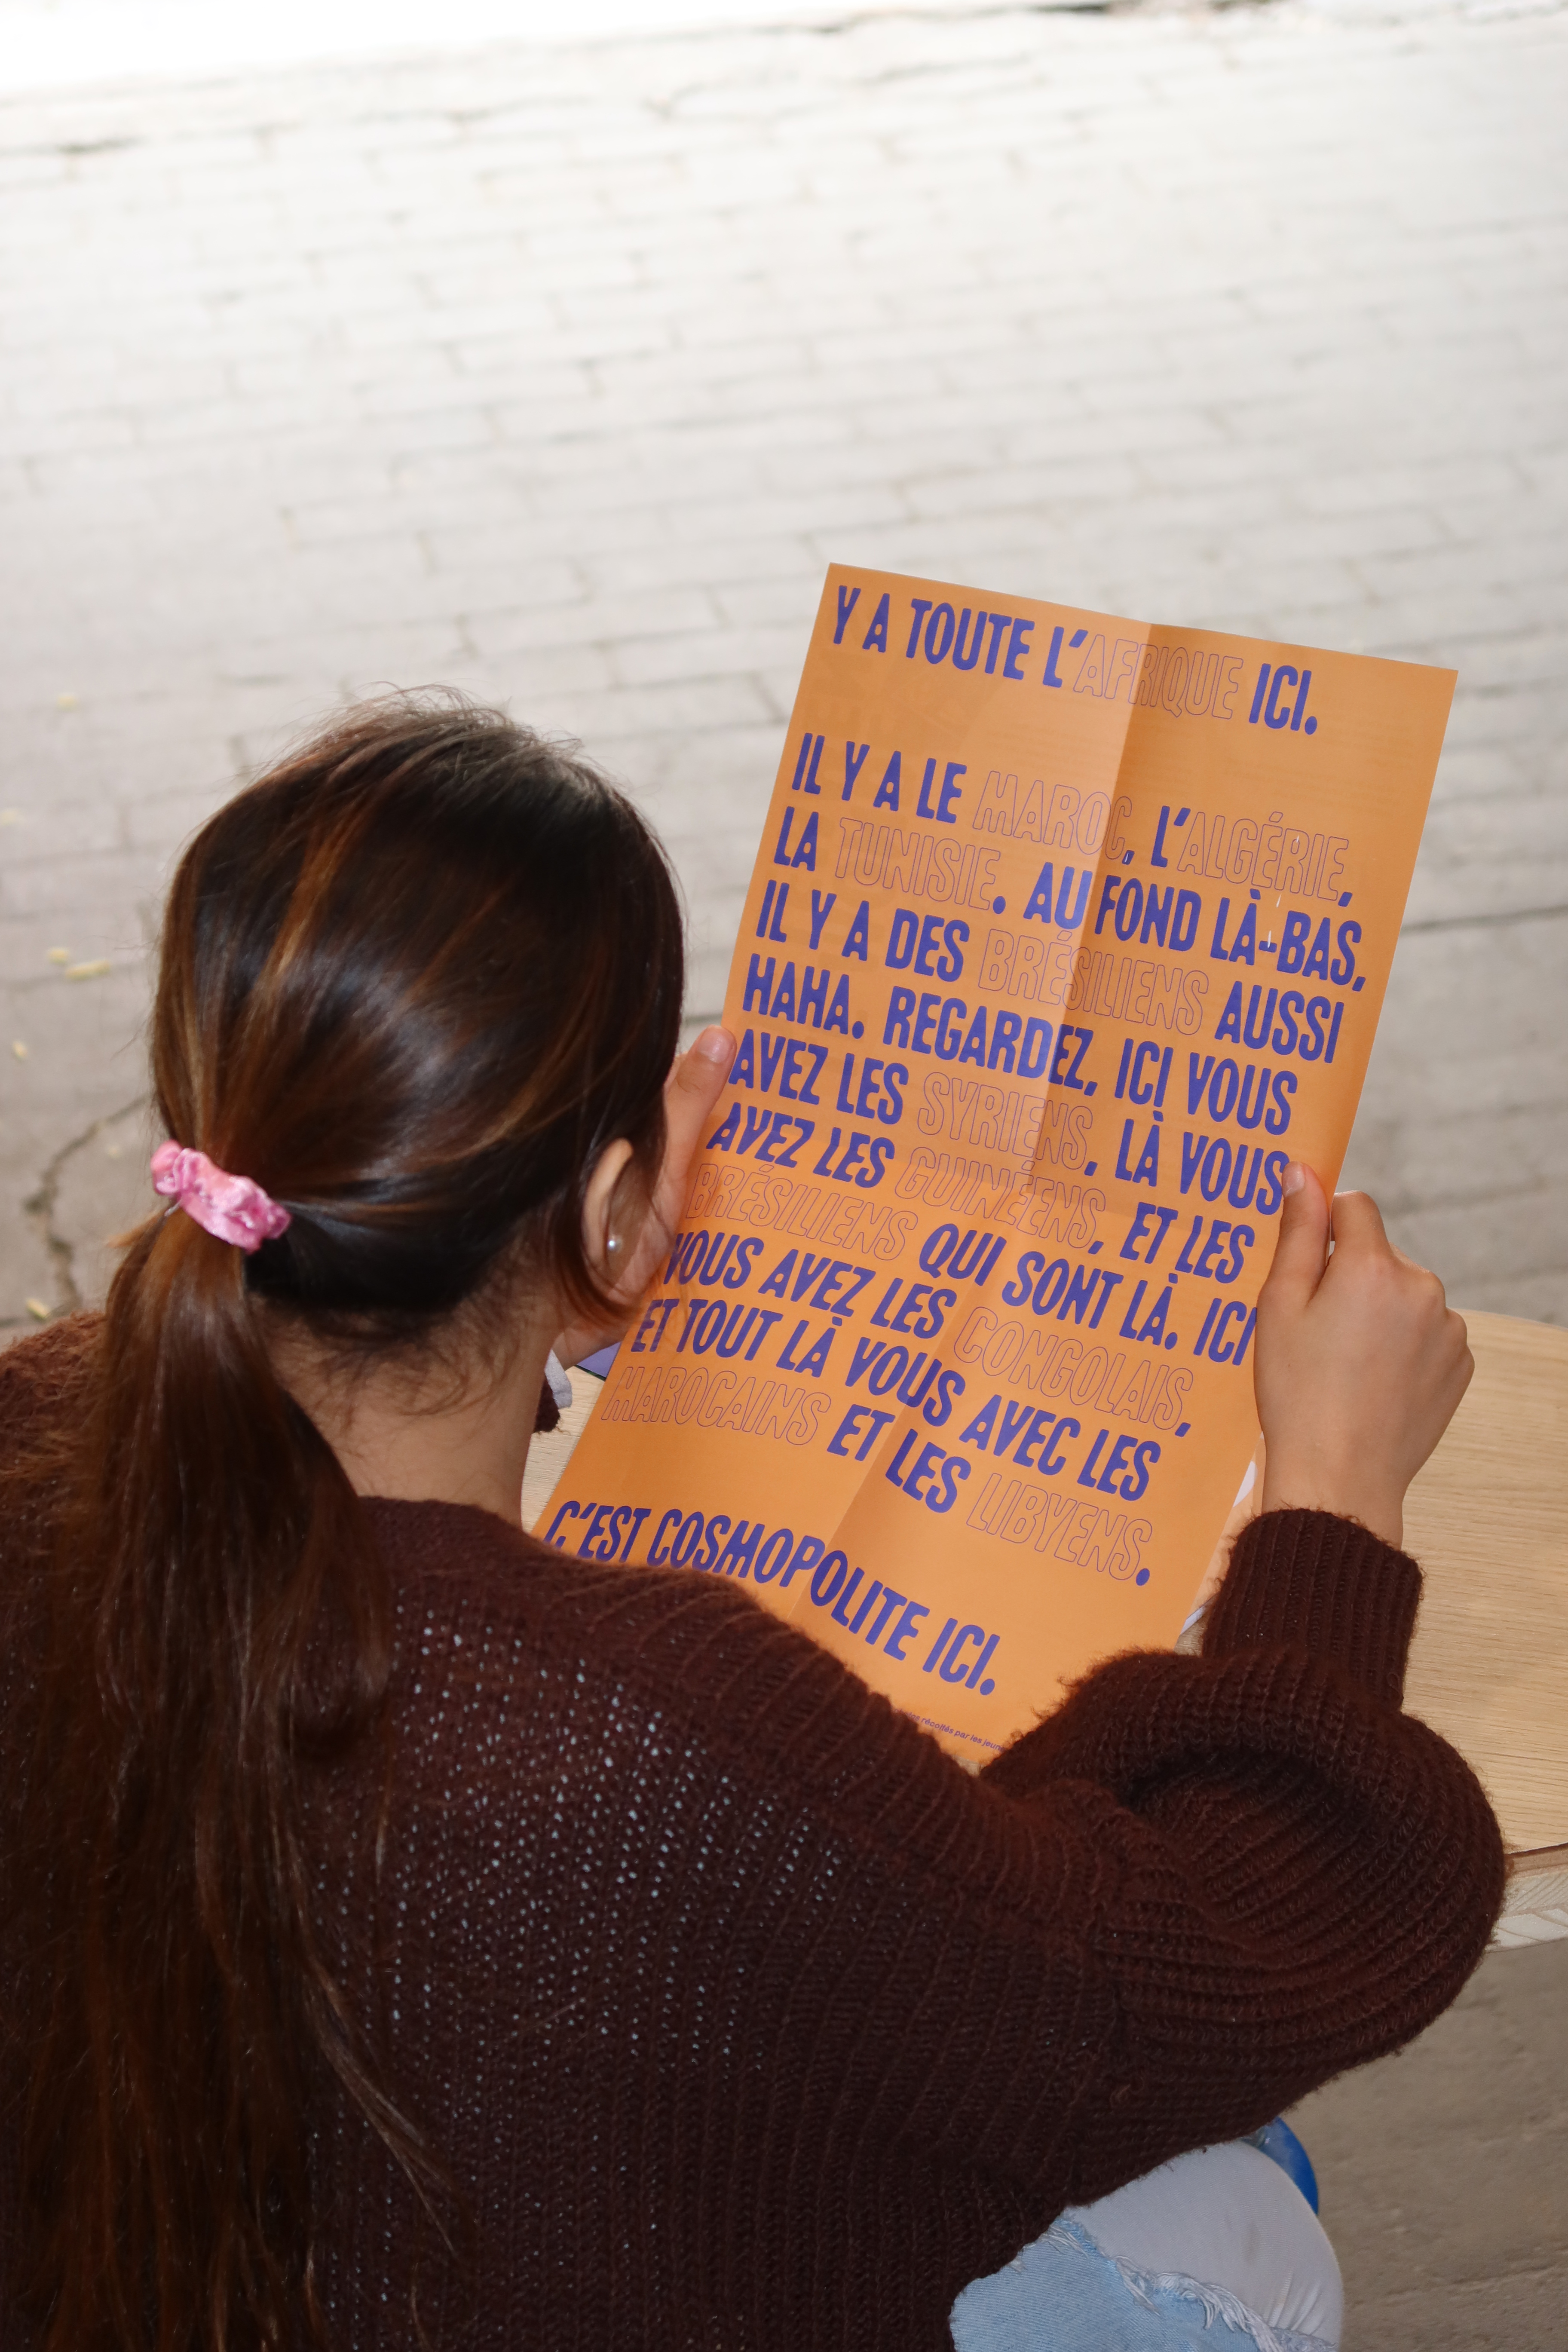 Y A TOUTE L'AFRIQUE ICI.
IL Y A LE MAROC, L'ALGÉRIE,
LA TUNISIE. AU FOND LÀ-BAS,
IL Y A DES BRÉSILIENS AUSSI
HAHA. REGARDEZ, ICI VOUS
AVEZ LES SYRIENS, LÀ VOUS
AVEZ LES GUINÉENS, ET LES
BRÉSILIENS QUI SONT LÀ. ICI
VOUS AVEZ LES CONGOLAIS,
ET TOUT LÀ VOUS AVEC LES
MAROCAINS ET LES LIBYENS.
C'EST COSMOPOLITE ICI.
récoltés par les